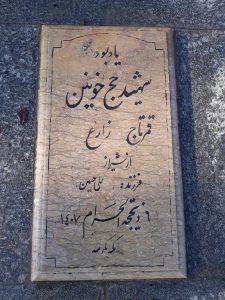 یادبود
شهید حج خونین
قمرتاج زارع
از شیراز
فرزند علی حسین
۶ ذیحجه الحرام ۱۴۰۷
مکه مکرمه